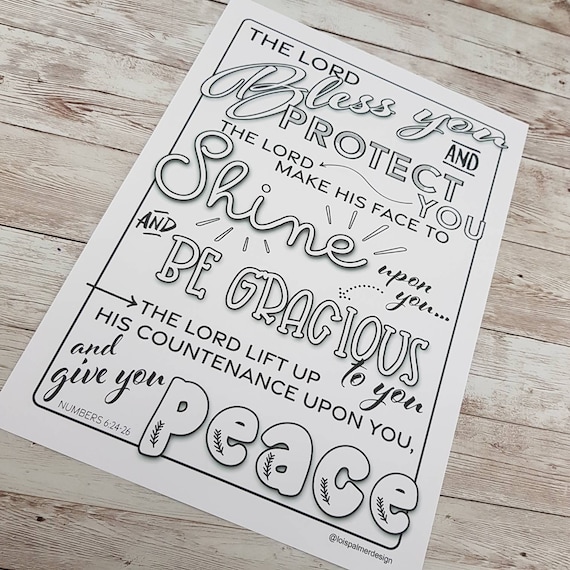 THE LORD
Bless you
AND
PROTECT
YOU
THE LORD
MAKE HIS FACE TO
Shine
upon
you...
AND
BE GRACIOUS
to you
THE LORD LIFT UP
HIS COUNTENANCE UPON YOU,
and
give you
peace
NUMBERS 6:24-26
@loispalmerdesign